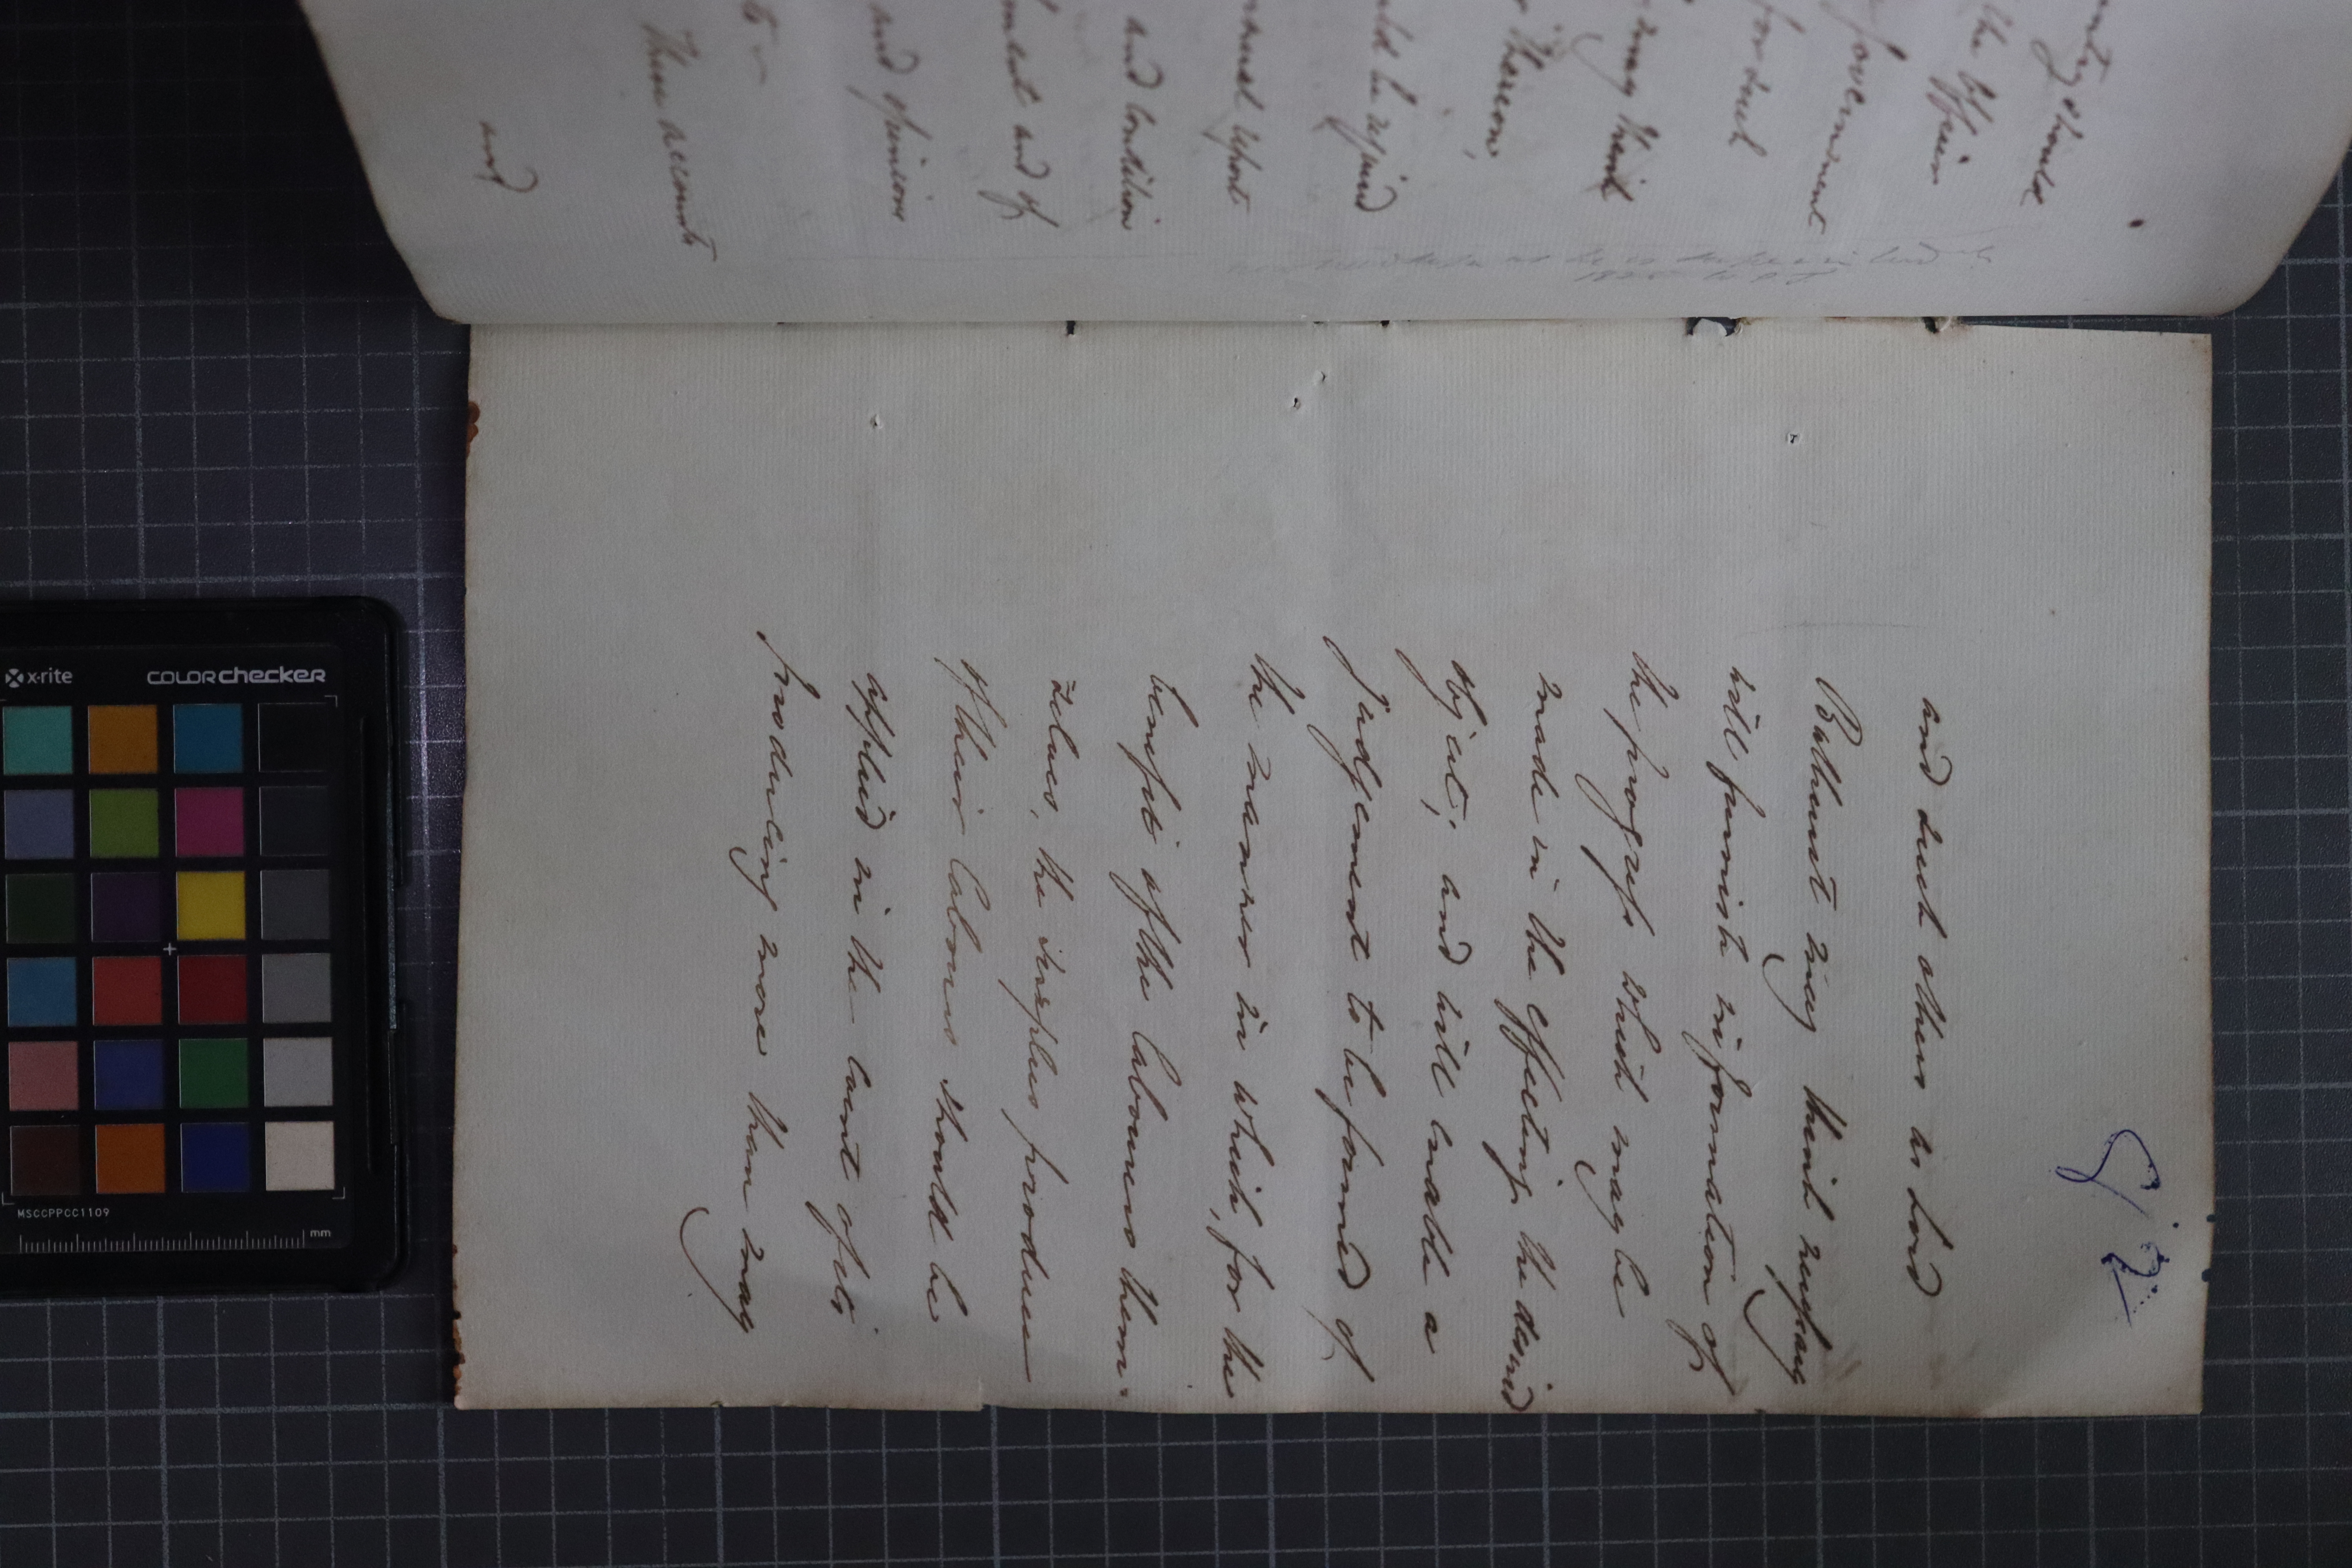 nty should
the Officer
Government
for such
may think
Thereon,
ld be required
eneral report
and condition
ment and of
and opinions
to
These accounts
and
8/2
and such others as Lord
Bathurst may think necessary
will furnish information of
the progress which may be
made in the effecting the desired
object; and will enable a
judgement to be formed of
the manner in which, for the
benefit of the labourers them-
selves, the surplus produce
of their labours should be
applied in the event of its
producing more than may
x-rite
COLORchecker
MSCCPPCC1109
mm